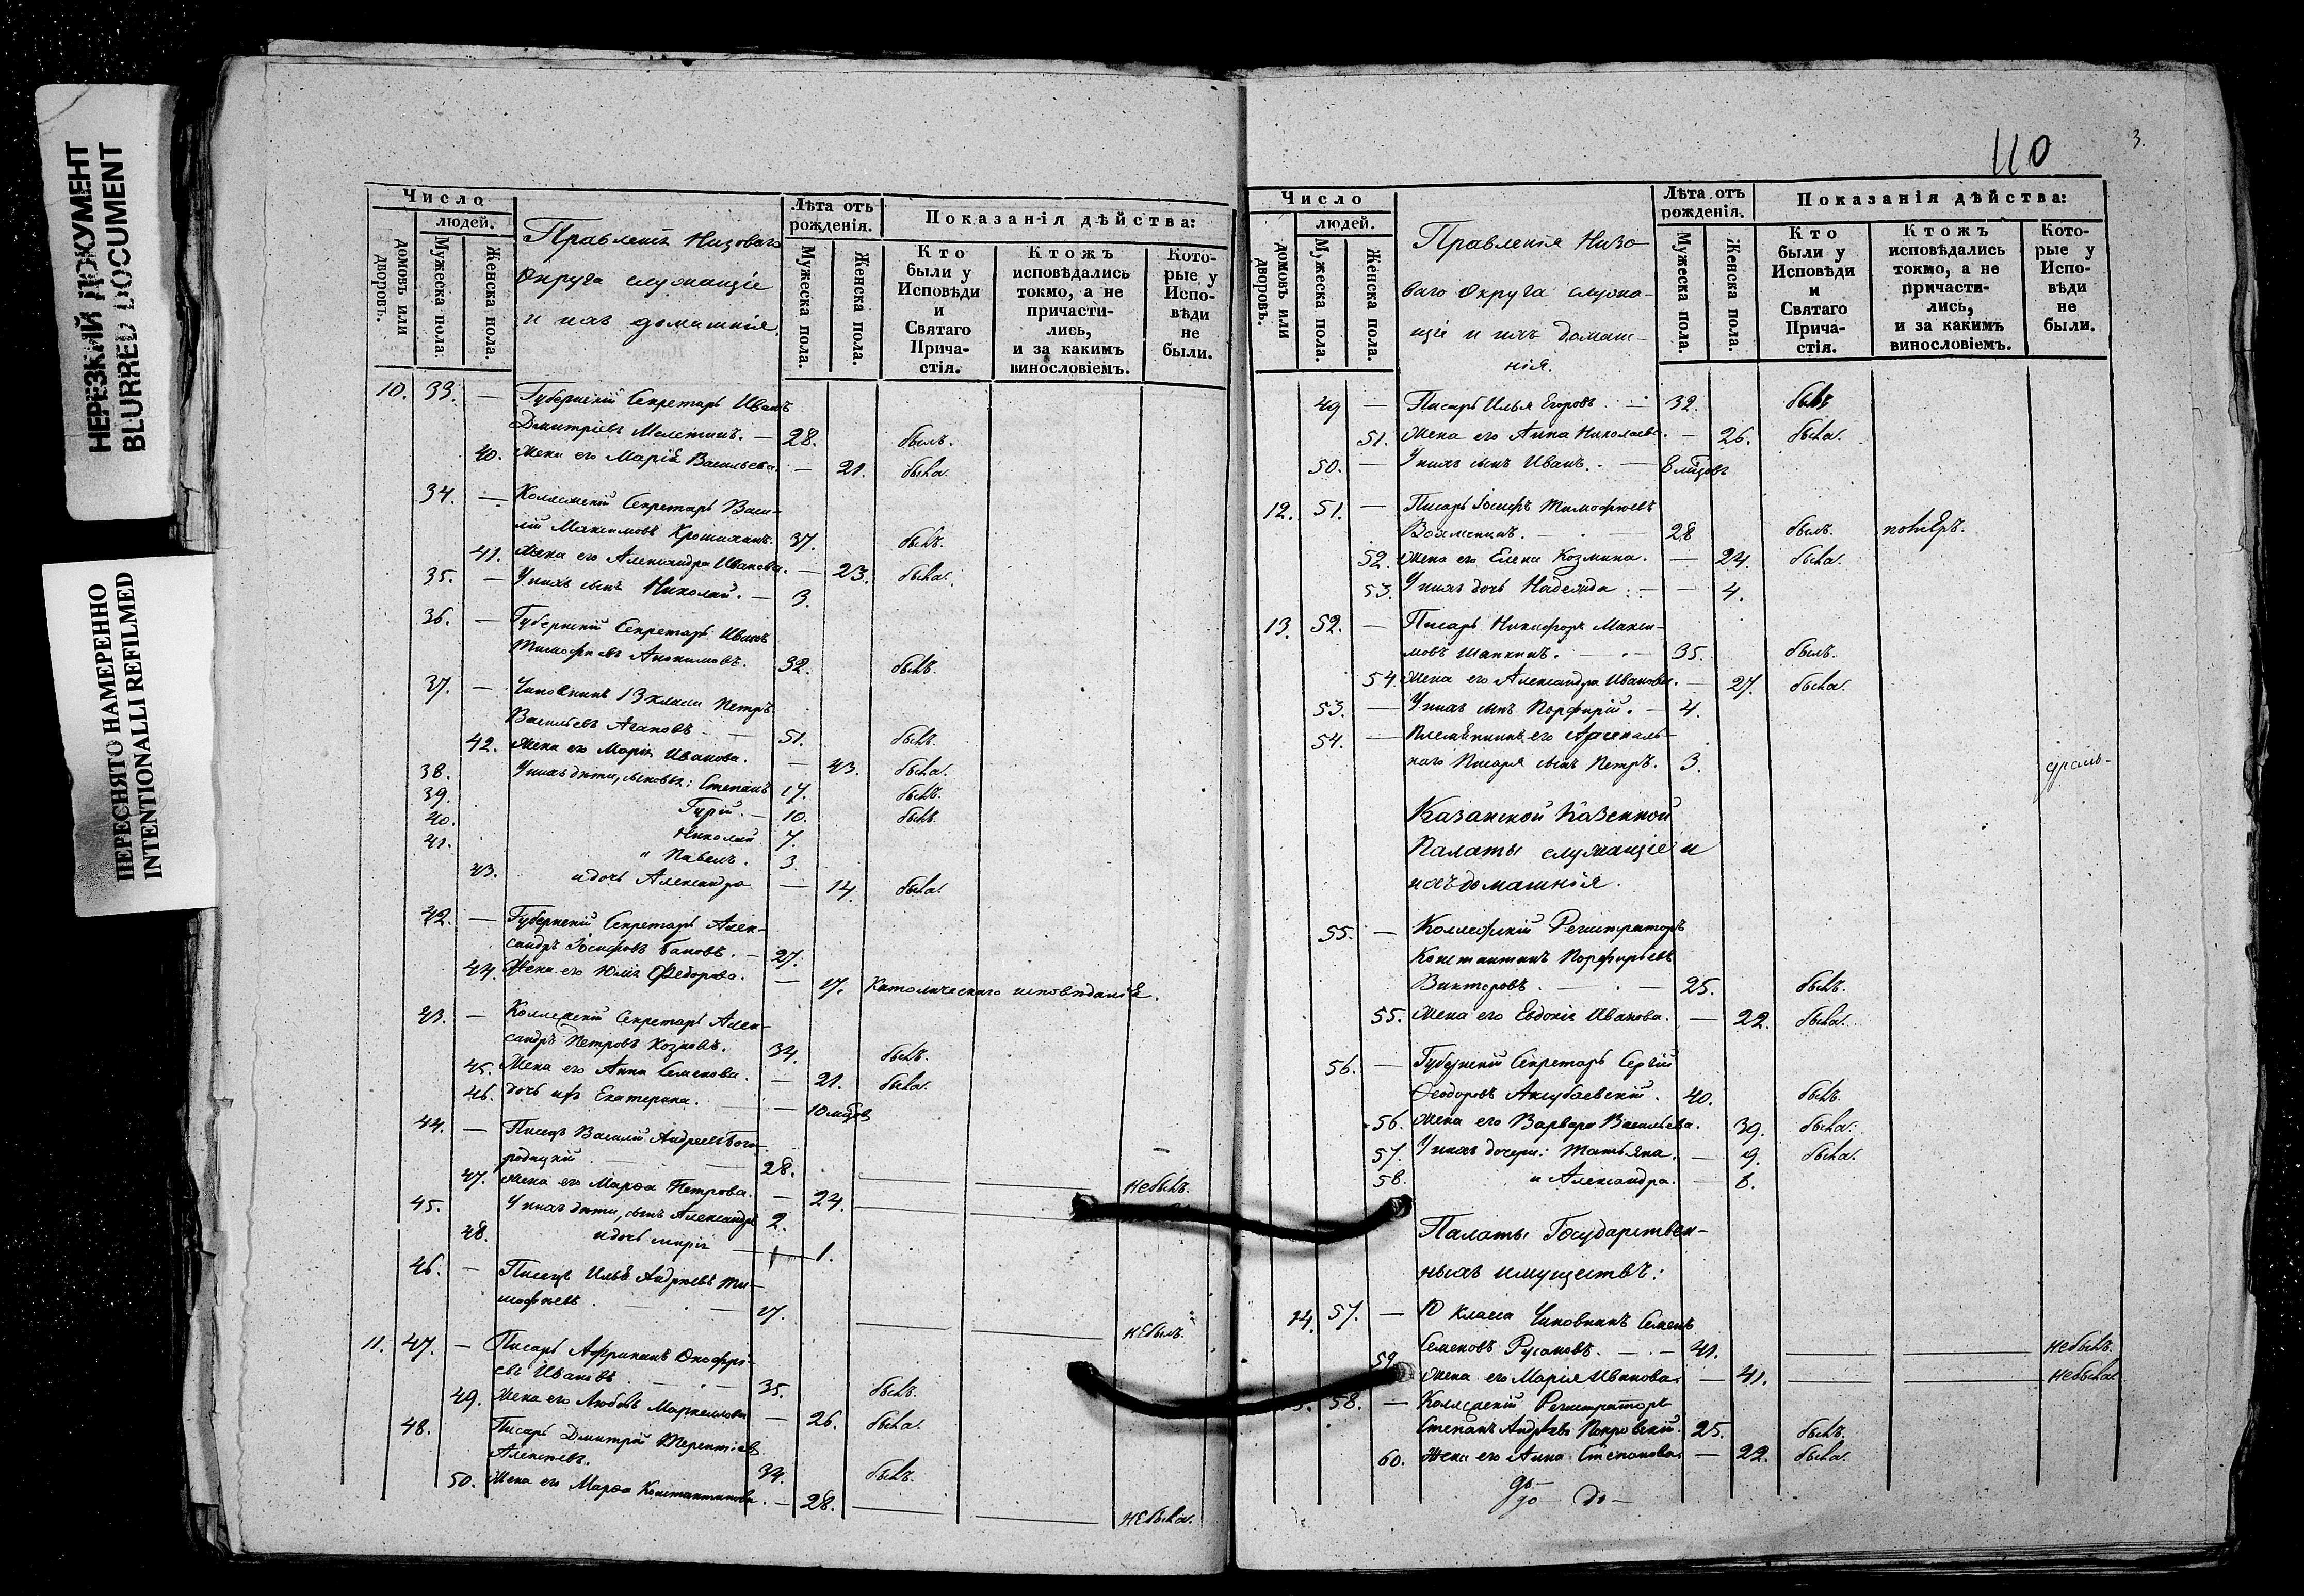 НЕРЕЗКИЙ ДОКУМЕНТ
BLURRED DOCUMENT
ПЕРЕСНЯТО НАМЕРЕННО
INTENTIONALLI REFILMED
Число
людей.
домовъ или дворовъ.
Мужеска пола.
Женска пола.
Правленія Низоваго
Округа служащіе
и ихъ домашнія
Лѣта отъ рожденія.
Мужеска пола.
Женска пола.
Показанія дѣйства:
Кто были у Исповѣди и Святаго Причастія.
Ктожъ исповѣдались токмо, а не причастились, и за какимъ винословіемъ.
Которые у Исповѣди не были.
10. 33. — Губернскій Секретарь Иванъ
Дмитріевъ Мелетинъ. — 28. былъ.
40. Жена его Марія Васильева. — 21. была.
34. — Коллежскій Секретарь Васи-
лій Максимовъ 37. былъ.
41. Жена его Александра Иванова. — 23. была.
35. — У нихъ сынъ Николай. — 3.
36. — Губернскій Секретарь Иванъ
Тимофеевъ Акинимовъ. 32. былъ.
37. — Чиновникъ 13 класса Петръ
Васильевъ Агаповъ — 51. былъ.
42. Жена его Марія Иванова. — 43. была.
38. У нихъ дѣти, сыновья: Степанъ 17. былъ.
39. Гурій. — 10. былъ.
40. Николай 7.
41. " Павелъ. 3.
43. и дочь Александра — 14. была.
42. — Губернскій Секретарь Алек-
сандръ Іосифовъ Бановъ. — 27.
44. Жена его Юлія Федорова. — 17. Католическаго исповѣданія.
43. — Коллежскій Секретарь Алек-
сандръ Петровъ Козловъ. 34. былъ.
45. Жена его Анна Семенова. — 21. была.
46. Дочь их Екатерина. — 10 мѣсов
44. — Писецъ Василій Андреевъ Бого-
родицкій — 28. — небылъ.
47. Жена его Марѳа Петрова. — 24. —
45. У нихъ дѣти, сынъ Александръ 2.
48. и дочь Марія — 1.
46. — Писецъ Илья Андреевъ Ти-
мофеевъ. — 27. — небылъ.
11. 47. — Писарь Африканъ Онофрі-
евъ Ивановъ — 35. былъ.
49. Жена его Любовь Маркеллова — 26. была.
48. Писарь Дмитрій Терентіев
Алексѣевъ. 34. былъ.
50. Жена его Марѳа Константинова. — 28. — небыла.
110
3.
Число
людей.
домовъ или дворовъ.
Мужеска пола.
Женска пола.
Правленія Низо-
ваго Округа служа-
щіе и ихъ домаш-
нія.
Лѣта отъ рожденія.
Мужеска пола.
Женска пола.
Показанія дѣйства:
Кто были у Исповѣди и Святаго Причастія.
Ктожъ исповѣдались токмо, а не причастились, и за какимъ винословіемъ.
Которые у Исповѣди не были.
49 — Писарь Илья Егоровъ. — 32. былъ
51. Жена его Анна Николаева. — 26. была.
50. — У нихъ сынъ Иванъ. — 8 мѣсцовъ
12. 51. — Писарь Іосифъ Тимофеевъ
— 28 былъ.
52. Жена его Елена Козмина. — 24. была.
53. У нихъ дочь Надежда: — 4.
13. 52. — Писарь Никифоръ Макси-
мовъ Шапкинъ. — 35. былъ.
54. Жена его Александра Иванова. — 27. была.
53. — У нихъ сынъ Порфирій. — 4.
54. — Племянникъ его Арсеналь-
наго Писаря сынъ Петръ. 3.
Казанской Казенной
Палаты служащіе и
ихъ домашнія.
55. — Коллежскій Регистраторъ
Константинъ Порфирьевъ
Викторовъ. — 25. былъ.
55. Жена его Евдокія Иванова. — 22. была.
56. — Губернскій Секретарь Сергій
Ѳеодоровъ Аксубаевскій. 40. былъ.
56. Жена его Варвара Васильева. 39. была.
57. У нихъ дочери: Татьяна. — 9. была.
58. и Александра. — 8.
Палаты Государствен-
ныхъ имуществъ:
14. 57. — 10 класса Чиновникъ Семенъ
Семеновъ Русановъ. — 41. — небылъ.
59. Жена его Марія Иванова. — 41. — небыла.
58. — Коллежскій Регистраторъ
Степанъ Андреевъ Покровскій. 25. былъ.
60. Жена его Анна Степанова. — 22. была.